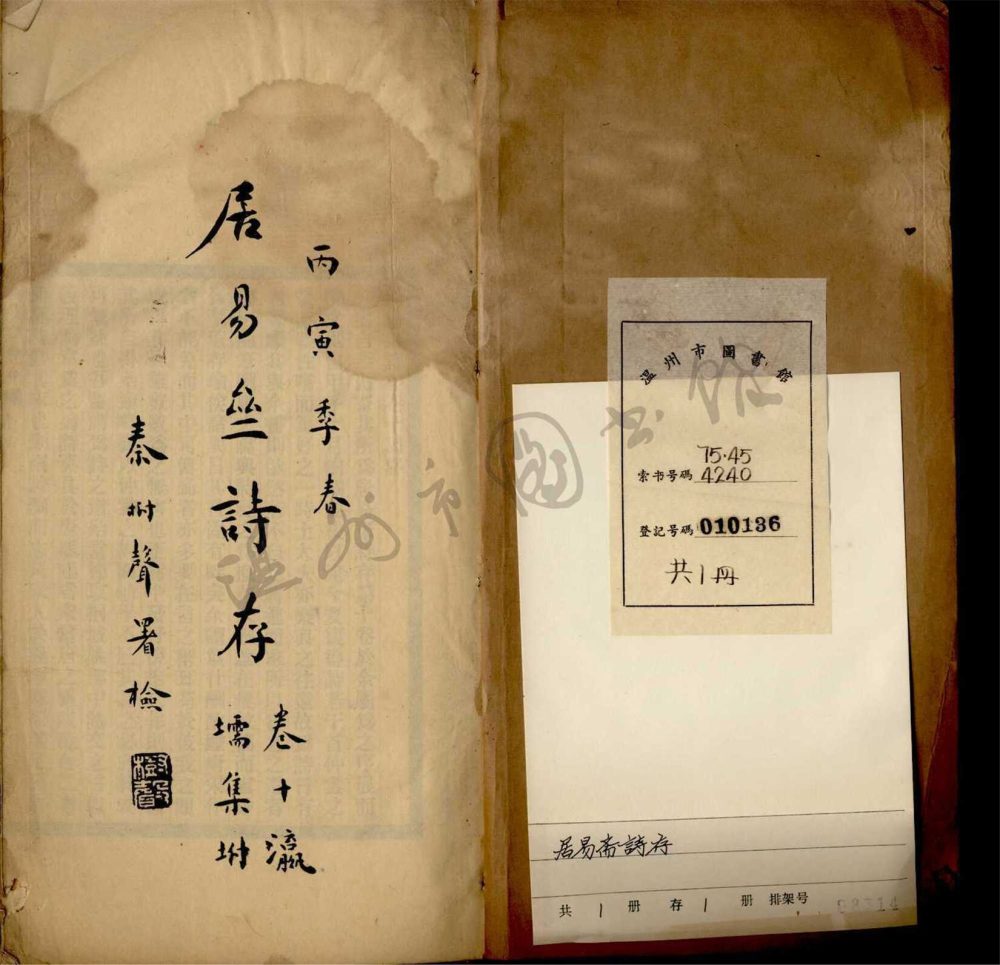 丙寅季春
居易亝詩存
卷十瀛
壖集坿
秦樹聲署檢
樹聲
温州市圖書館
索书号碼 75·45
4240
登記号碼 010136
共1册
居易斋詩存
共 1 册 存 1 册 排架号
温州市图书馆